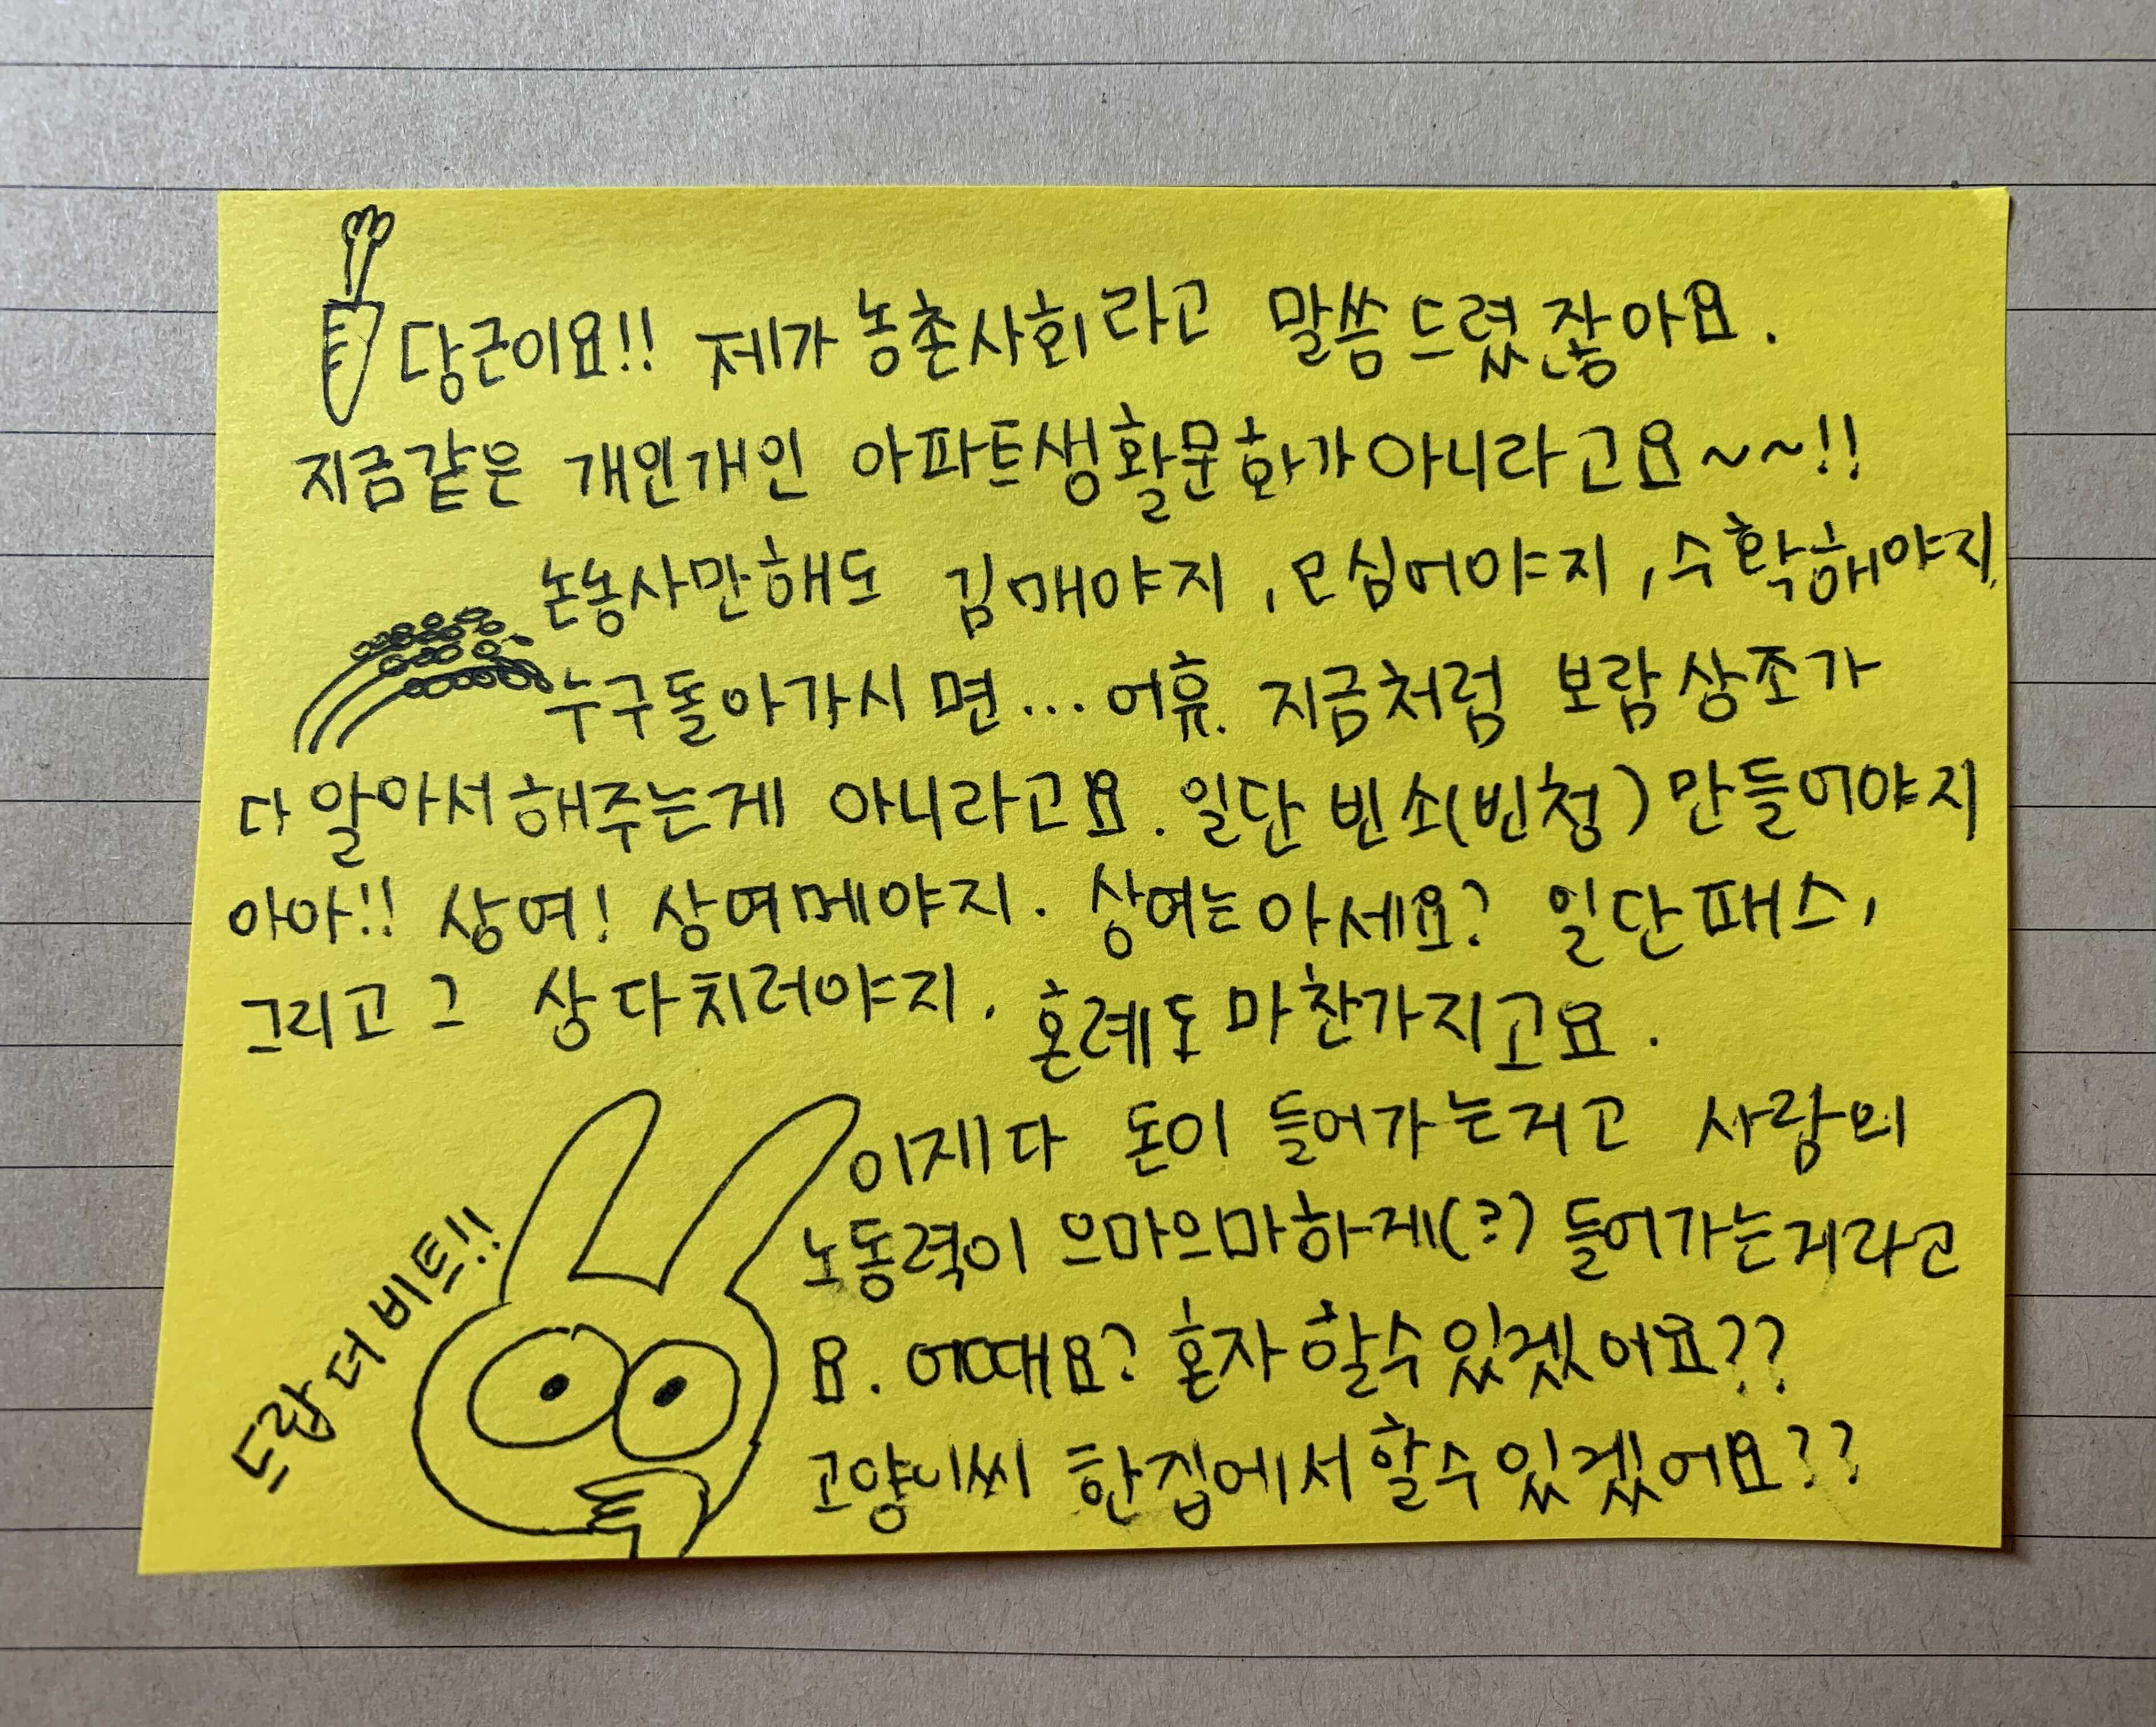 당근이요!! 제가 농촌사회라고 말씀드렸잖아요.
지금같은 개인개인 아파트생활문화가아니라고요~~!!
논농사만해도 김매야지, 모심어야지, 수확해야지,
누구돌아가시면... 어휴. 지금처럼 보람상조가
다알아서해주는게 아니라고요. 일단 빈소(빈청) 만들어야지
아아!! 상여! 상여메야지. 상여는아세요? 일단패스,
그리고 그 상다치러야지. 혼례도 마찬가지고요.
이제다 돈이 들어가는거고 사람의
노동력이 으마으마하게(?) 들어가는거라고
요. 어때요? 혼자할수있겠어요??
고양이씨 한집에서할수있겠어요??
드랍더비트!!